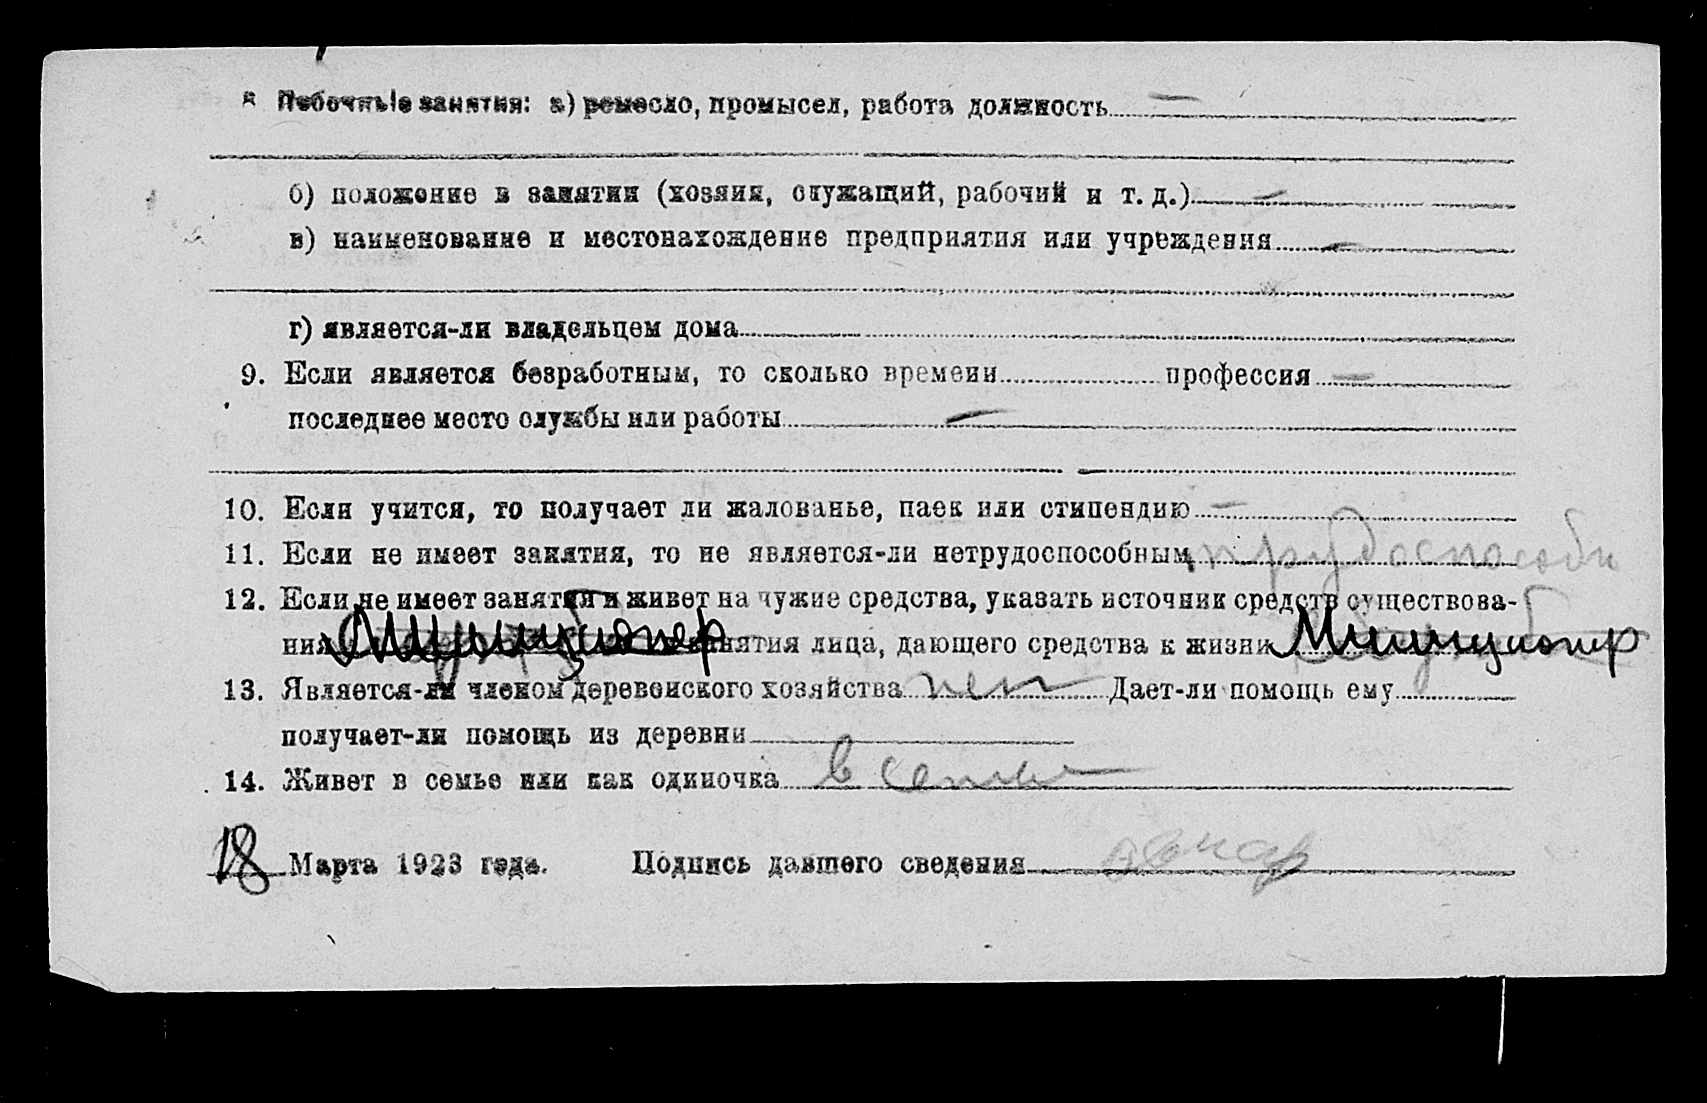 8 Побочные занятия: а) ремесло, промысел, работа должность —
б) положение в занятии (хозяин, служащий, рабочий и т. д.) —
в) наименование и местонахождение предприятия или учреждения —
г) является-ли владельцем дома
9. Если является безработным, то сколько времени профессия —
последнее место службы или работы —
10. Если учится, то получает ли жалованье, паек или стипендию —
11. Если не имеет занятия, то не является-ли нетрудоспособным трудоспособн
12. Если не имеет занятия и живет на чужие средства, указать источник средств существова-
ния Милиционер занятия лица, дающего средства к жизни Милиционер
13. Является-ли членом деревенского хозяйства нет Дает-ли помощь ему
получает-ли помощь из деревни
14. Живет в семье или как одиночка в семье
18 Марта 1923 года. Подпись давшего сведения